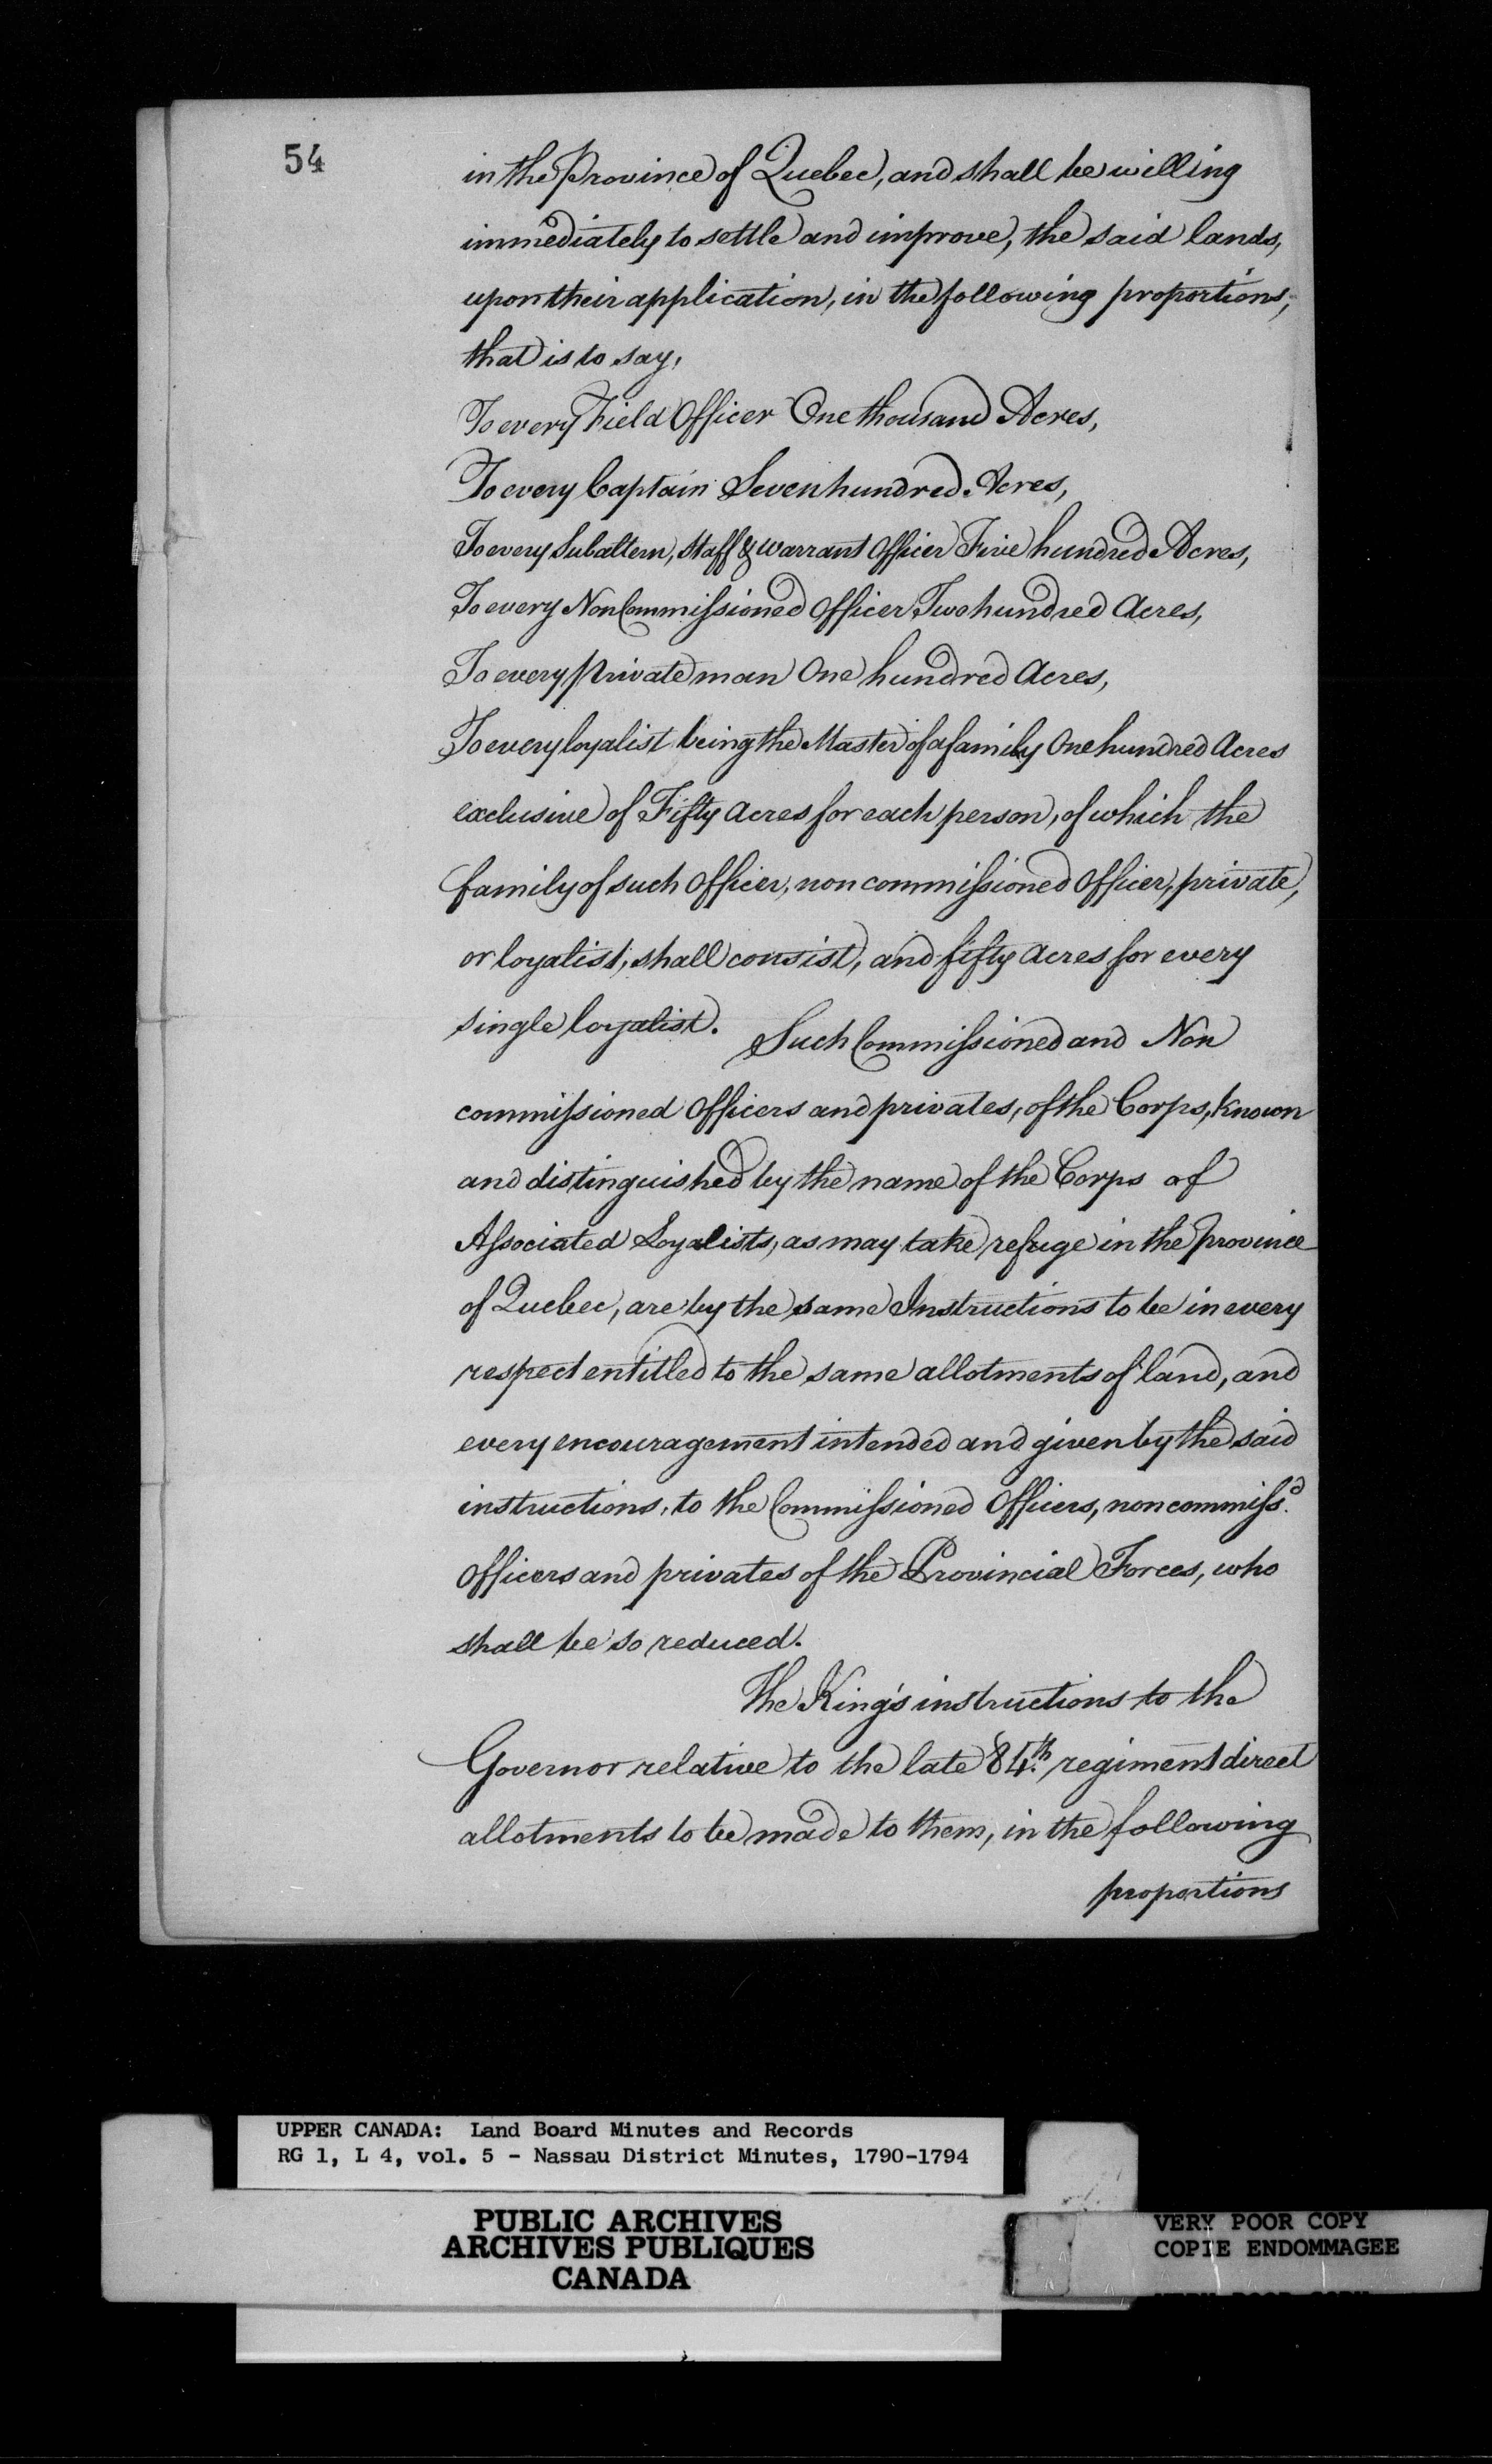 54
in the Province of Quebec, and shall be willing
immediately to settle and improve, the said lands,
upon their application, in the following proportions;
that is to say,
To every Field Officer One thousand Acres,
To every Captain Seven hundred Acres,
To every Subaltern, Staff & warrant Officer Five hundred Acres,
To every Non Commissioned Officer Two hundred Acres,
To every private man One hundred Acres,
To every loyalist being the Master of a family One hundred Acres
exclusive of Fifty Acres for each person, of which the
family of such Officer, non commissioned Officer, private,
or loyalist, shall consist, and fifty Acres for every
single loyalist. Such Commissioned and Non
commissioned Officers and privates, of the Corps, known
and distinguished by the name of the Corps of
Associated Loyalists, as may take refuge in the province
of Quebec, are by the same Instructions to be in every
respect entitled to the same allotments of land, and
every encouragement intended and given by the said
instructions, to the Commissioned Officers, non commiss.d
Officers and privates of the Provincial Forces, who
shall be so reduced.
The King's instructions to the
Governor relative to the late 84.th regiment direct
allotments to be made to them, in the following
proportions
UPPER CANADA: Land Board Minutes and Records
RG 1, L 4, vol. 5 - Nassau District Minutes, 1790-1794
PUBLIC ARCHIVES
ARCHIVES PUBLIQUES
CANADA
VERY POOR COPY
COPIE ENDOMMAGEE